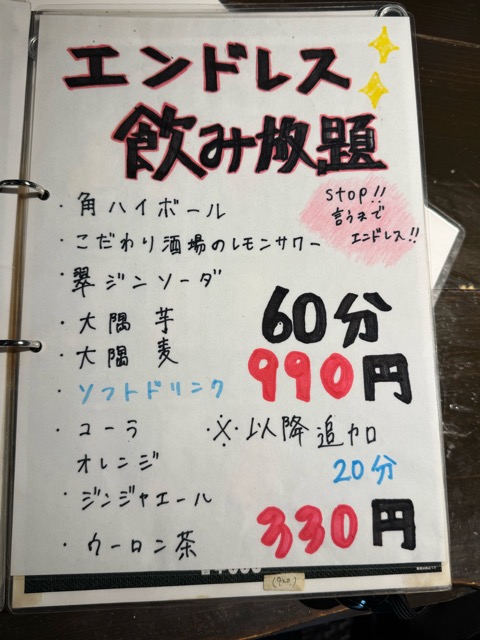 エンドレス
飲み放題
stop!!
言うまで
エンドレス!!
・角ハイボール
・こだわり酒場のレモンサワー
・翠ジンソーダ
・大隅 芋
・大隅 麦
・ソフトドリンク
・コーラ
オレンジ
・ジンジャエール
・ウーロン茶
60分
990円
※以降追加
20分
330円